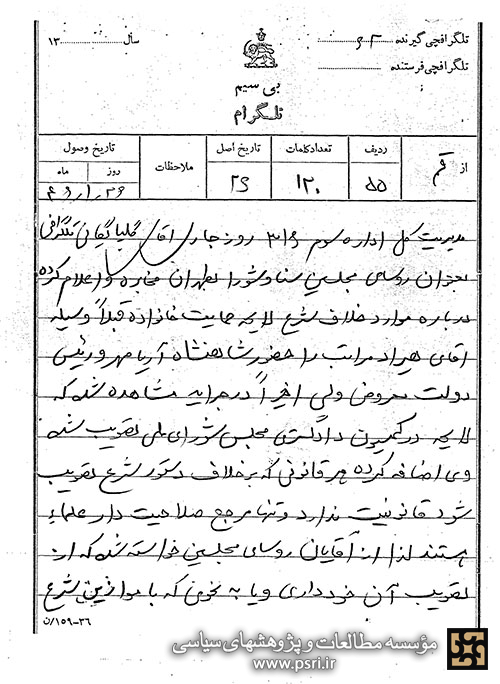 تلگرافچی گیرنده
سال ۱۳
تلگرافچی فرستنده
بی سیم
تلگرام
از قم
ردیف
تعداد کلمات
تاریخ اصل
ملاحظات
تاریخ وصول
روز
ماه
۵۵
۱۲۰
۲۶
مدیریت کل اداره سوم ۳۱۶ روز جاری آقای گلپایگانی تلگرافی
بعنوان روسای مجلسین سنا و شورا بطهران مخابره و اعلام کرده
درباره موارد خلاف شرع لایحه حمایت خانواده قبلاً وسیله
آقای هیراد مراتب را حضور شاهنشاه آریامهر و رئیس
دولت معروض ولی اخیراً در جراید مشاهده شد که
لایحه در کمیسیون دادگستری مجلس شورای ملی تصویب شده
وی اضافه کرده هر قانونی که برخلاف دستور شرع تصویب
شود قانونیت ندارد و تنها مرجع صلاحیت دار علماء
هستند لذا از آقایان روسای مجلسین خواسته شده که از
تصویب آن خودداری و یا به نحوی که با موازین شرع
۳۶-۱۵۹/ن
مؤسسه مطالعات و پژوهشهای سیاسی
www.psri.ir